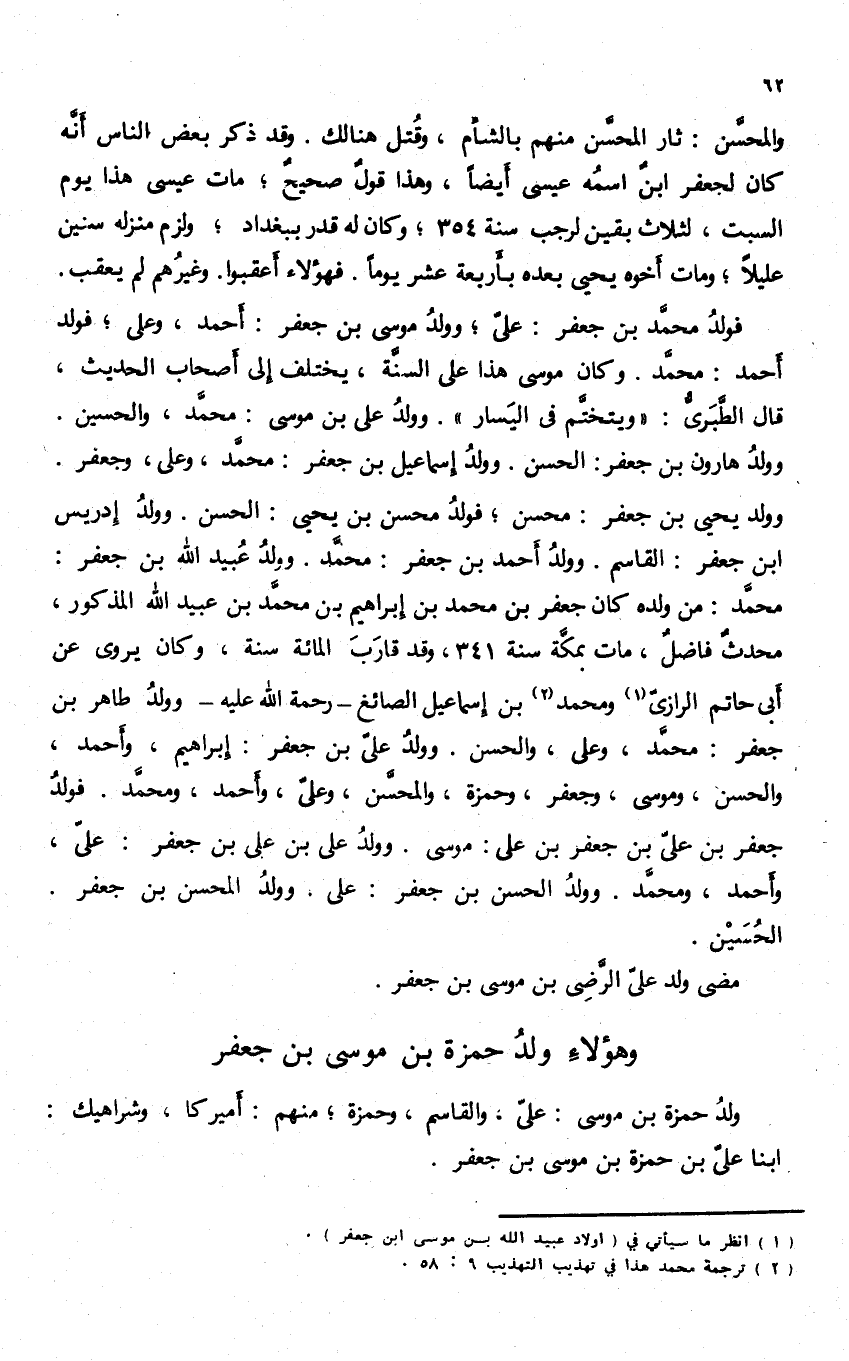 ٦٢
والمحسَّن : ثار المحسَّن منهم بالشأم ، وقُتل هنالك . وقد ذكر بعض الناس أَنَّه
كان لجعفر ابنٌ اسمُه عيسى أَيضاً ، وهذا قولٌ صحيحٌ ؛ مات عيسى هذا يوم
السبت ، لثلاث بقين لرجب سنة ٣٥٤ ؛ وكان له قدر ببغداد ؛ ولزم منزله سنين
عليلاً ؛ ومات أَخوه يحيى بعده بأَربعة عشر يوماً . فهؤلاء أَعقبوا . وغيرُهم لم يعقب .
فولدُ محمَّد بن جعفر : علىّ ؛ وولدُ موسى بن جعفر : أَحمد ، وعلى ؛ فولد
أَحمد : محمَّد . وكان موسى هذا على السنَّة ، يختلف إلى أَصحاب الحديث ،
قال الطَّبَرىُّ : « ويتختَّم فى اليَسار » . وولدُ على بن موسى : محمَّد ، والحسين .
وولدُ هارون بن جعفر : الحسن . وولدُ إسماعيل بن جعفر : محمَّد ، وعلى ، وجعفر .
وولد يحيى بن جعفر : محسن ؛ فولدُ محسن بن يحيى : الحسن . وولدُ إدريس
ابن جعفر : القاسم . وولدُ أَحمد بن جعفر : محمَّد . وولدُ عُبيد الله بن جعفر :
محمَّد : من ولده كان جعفر بن محمد بن إبراهيم بن محمَّد بن عبيد الله المذكور ،
محدثٌ فاضلٌ ، مات بمكَّة سنة ٣٤١ ، وقد قارَبَ المائة سنة ، وكان يروى عن
أَبى حاتم الرازىّ (١) ومحمد (٢) بن إسماعيل الصائغ – رحمة الله عليه – وولدُ طاهر بن
جعفر : محمَّد ، وعلى ، والحسن . وولدُ علىّ بن جعفر : إبراهيم ، وأَحمد ،
والحسن ، وموسى ، وجعفر ، وحمزة ، والمحسَّن ، وعلىّ ، وأَحمد ، ومحمَّد . فولدُ
جعفر بن علىّ بن جعفر بن على : موسى . وولدُ على بن على بن جعفر : علىّ ،
وأَحمد ، ومحمَّد . وولدُ الحسن بن جعفر : على . وولدُ المحسن بن جعفر .
الحُسَيْن .
مضى ولد علىّ الرَّضِى بن موسى بن جعفر .
وهؤلاءِ ولدُ حمزة بن موسى بن جعفر
ولدُ حمزة بن موسى : علىّ ، والقاسم ، وحمزة ؛ منهم : أَميركا ، وشراهيك :
ابنا علىّ بن حمزة بن موسى بن جعفر .
( ١ ) انظر ما سيأتي في ( اولاد عبيد الله بن موسى ابن جعفر ) .
( ٢ ) ترجمة محمد هذا في تهذيب التهذيب ٩ : ٥٨ .